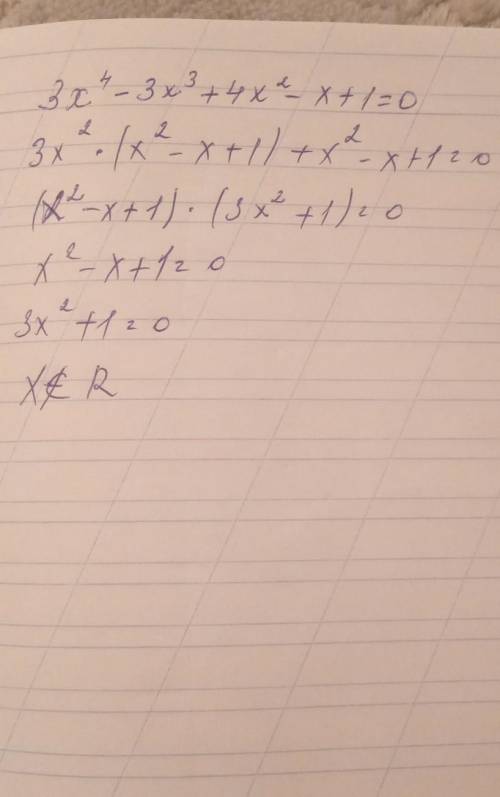 3x⁴ - 3x³ + 4x² - x + 1 = 0
3x² · (x² - x + 1) + x² - x + 1 = 0
(x² - x + 1) · (3x² + 1) = 0
x² - x + 1 = 0
3x² + 1 = 0
x ∉ R